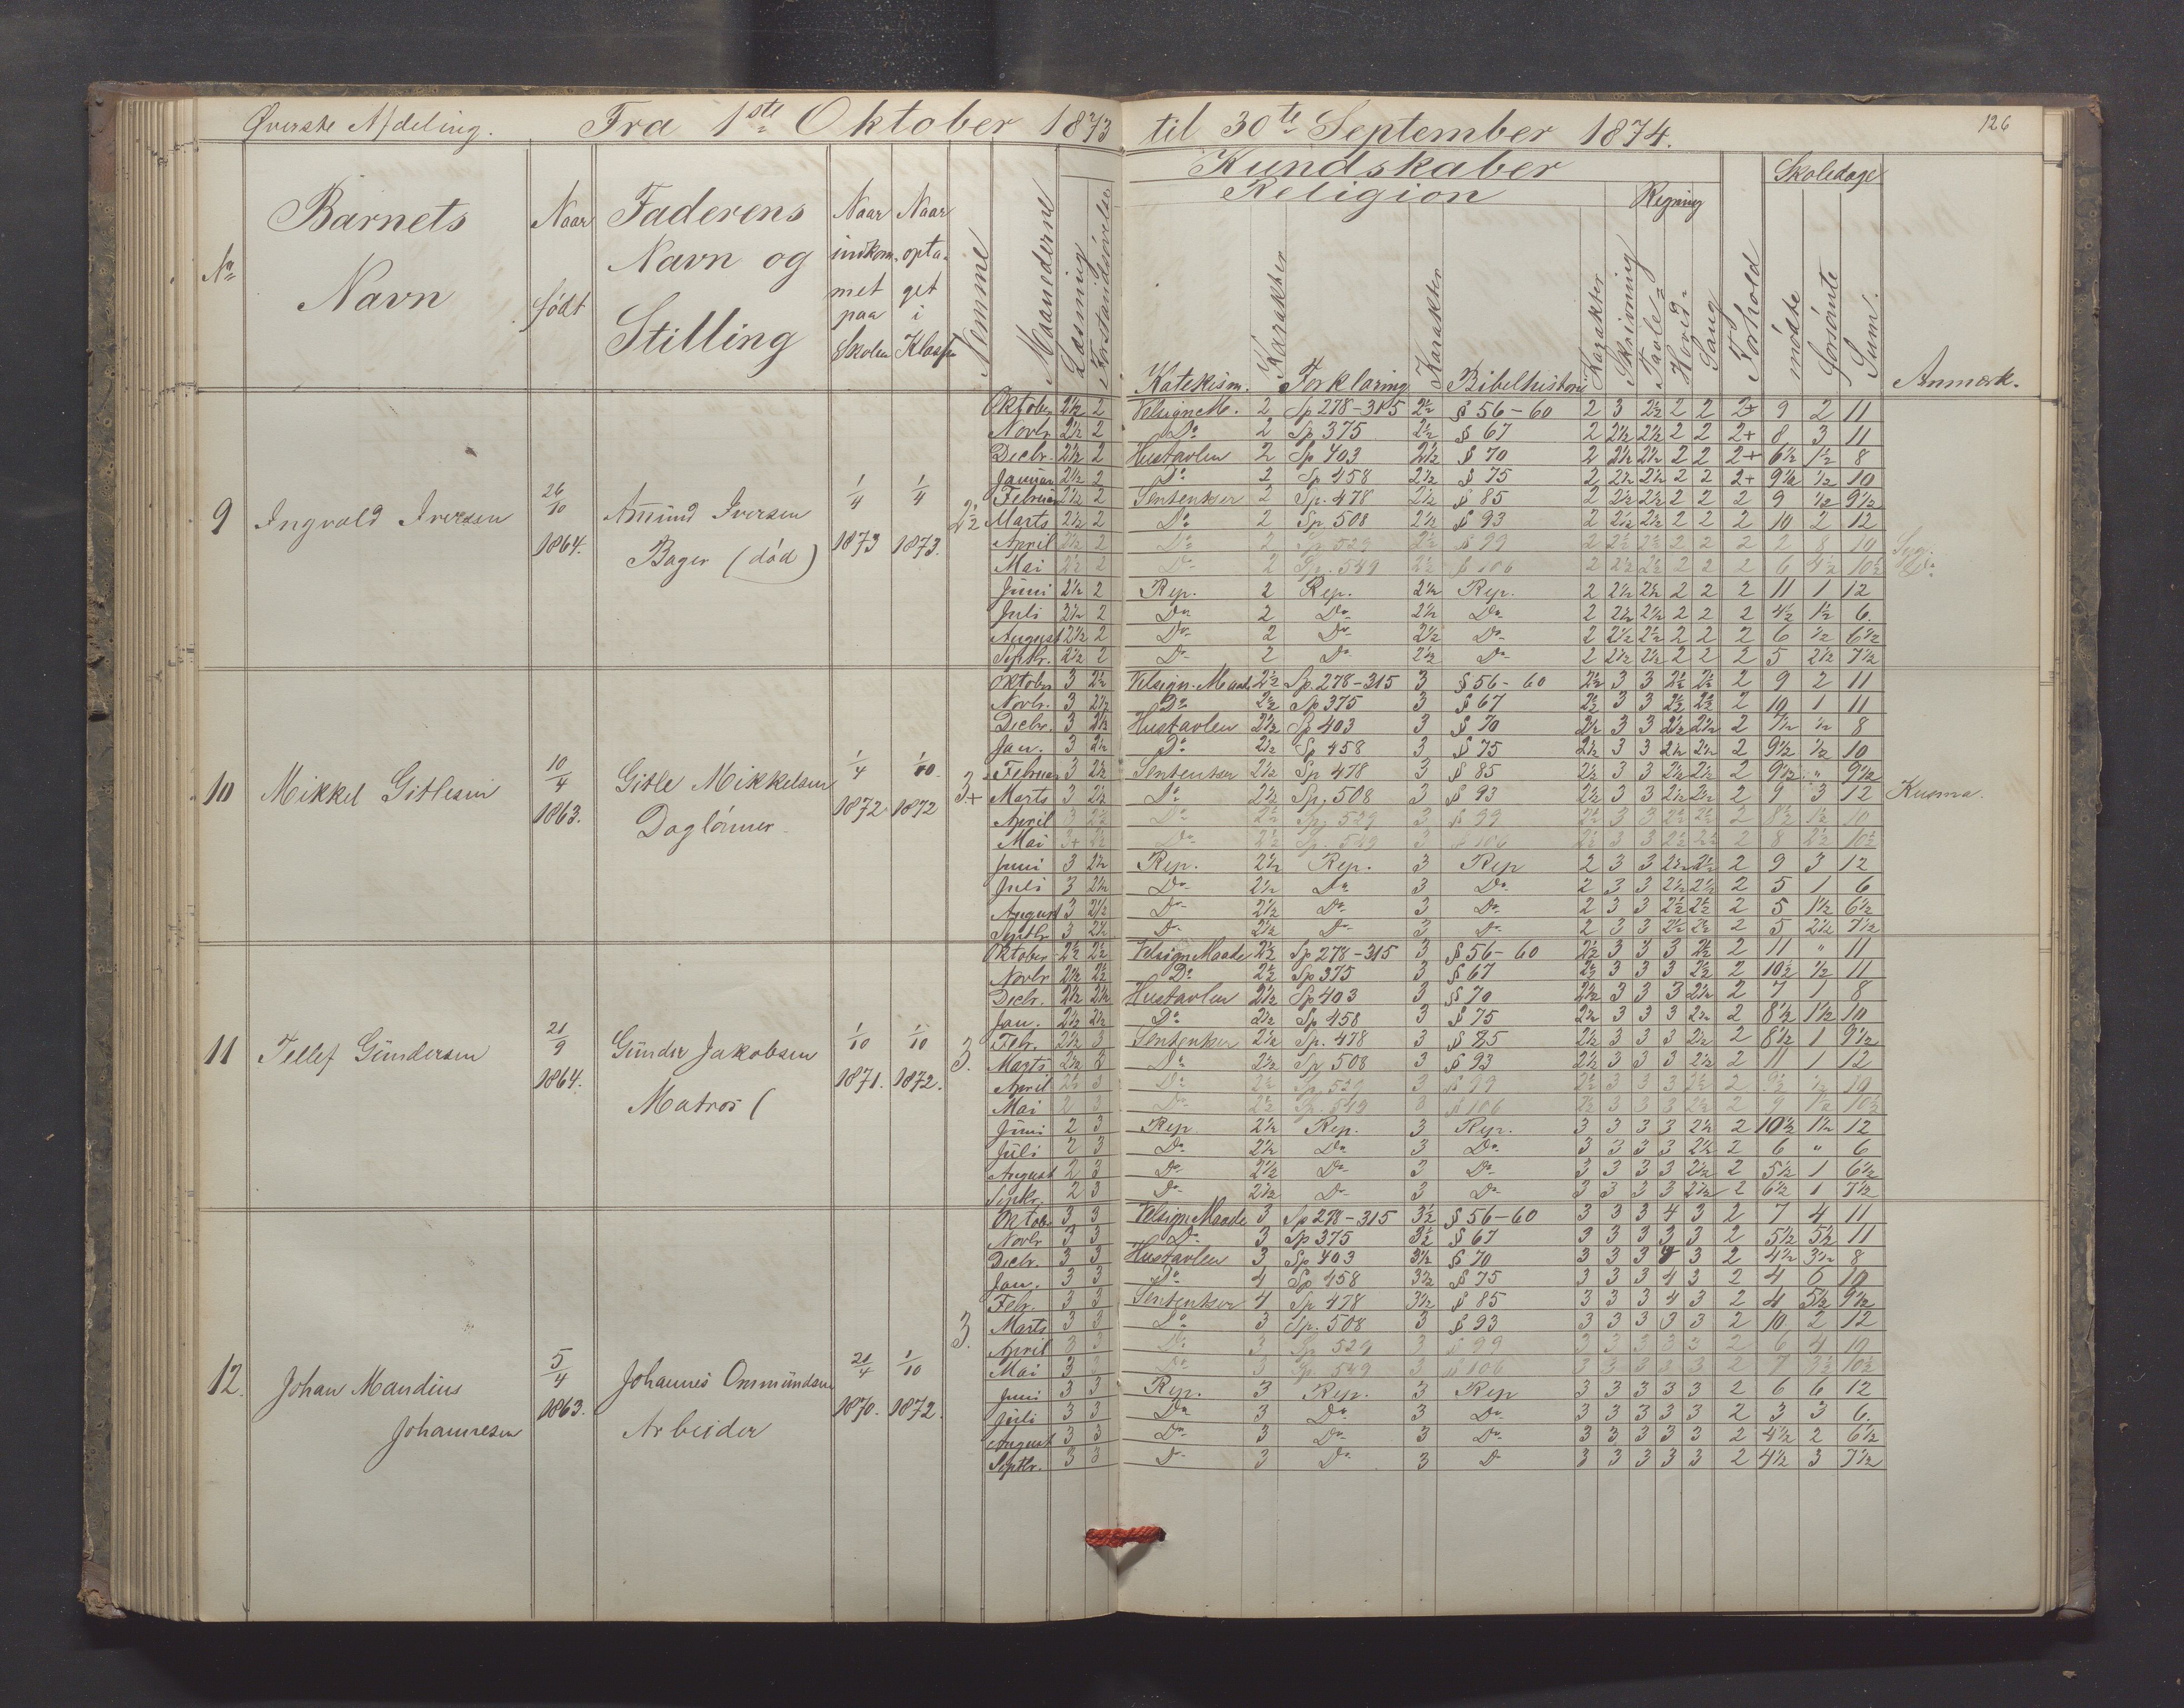 Øverste Afdeling. Fra 1ste Oktober 1873 til 30te September 1874. 126
Kundskaber
Religion Regning Skoledage
No Barnets Navn Naar født Faderens Navn og Stilling Naar indkommet paa Skolen Naar optaget i Klassen Nemme Maanederne Læsning Forstandsøvelse Katekism. Karakter Forklaring Karakter Bibelhistorie Karakter Skrivning Tavle- Hovid- Sang Forhold mødte forsømte Sum. Anmærk.
9 Ingvald Iversen 26/10 1864. Amund Iversen Bager (død) 1/4 1873 1/4 1873. 2½
Oktober 2½ 2 VelsignM. 2 Sp 278-315 2½ § 56-60 2 3 2½ 2 2 2+ 9 2 11
Novbr 2½ 2 Do 2 Sp 375 2½ § 67 2 2½ 2½ 2 2 2+ 8 3 11
Decbr. 2½ 2 Hustavlen 2 Sp 403 2½ § 70 2 2½ 2½ 2 2 2+ 6½ 1½ 8
Januar 2½ 2 Do 2 Sp 458 2½ § 75 2 2½ 2½ 2 2 2+ 9½ ½ 10
Februar 2½ 2 Sentenser 2 Sp. 478 2½ § 85 2 2½ 2½ 2 2 2 9 ½ 9½
Marts 2½ 2 Do 2 Sp. 508 2½ § 93 2 2½ 2½ 2 2 2 10 2 12
April 2½ 2 Do 2 Sp 529 2½ § 99 2 2½ 2½ 2 2 2 2 8 10 Syg.
Mai 2½ 2 Do 2 Sp. 549 2½ § 106 2 2½ 2½ 2 2 2 6 4½ 10½ Do
Juni 2½ 2 Rep. 2 Rep. 2½ Rep. 2 2½ 2½ 2 2 2 11 1 12
Juli 2½ 2 Do 2 Do 2½ Do 2 2½ 2½ 2 2 2 4½ 1½ 6.
August 2½ 2 Do 2 Do 2½ Do 2 2½ 2½ 2 2 2 6 ½ 6½
Septbr. 2½ 2 Do 2 Do 2½ Do 2 2½ 2½ 2 2 2 5 2½ 7½
10 Mikkel Gitlesen 10/4 1863. Gitle Mikkelsen Daglønner 1/4 1872 1/10 1872 3+
Oktober 3 2½ Velsign. Maade 2½ Sp. 278-315 3 § 56-60 2½ 3 3 2½ 2½ 2 9 2 11
Novbr. 3 2½ Do 2½ Sp 375 3 § 67 2½ 3 3 2½ 2½ 2 10 1 11
Decbr. 3 2½ Hustavlen 2½ Sp 403 3 § 70 2½ 3 3 2½ 2½ 2 7½ ½ 8
Jan. 3 2½ Do 2½ Sp 458 3 § 75 2½ 3 3 2½ 2½ 2 9½ ½ 10
Februar 3 2½ Sentenser 2½ Sp 478 3 § 85 2½ 3 3 2½ 2½ 2 9½ " 9½
Marts 3 2½ Do 2½ Sp. 508 3 § 93 2½ 3 3 2½ 2½ 2 9 3 12 Kusma.
April 3 2½ Do 2½ Sp. 529 3 § 99 2½ 3 3 2½ 2½ 2 8½ 1½ 10
Mai 3+ 2½ Do 2½ Sp. 549 3 § 106 2½ 3 3 2½ 2½ 2 8 2½ 10½
Juni 3 2½ Rep. 2½ Rep. 3 Rep 2 3 3 2½ 2½ 2 9 3 12
Juli 3 2½ Do 2½ Do 3 Do 2 3 3 2½ 2½ 2 5 1 6
August 3 2½ Do 2½ Do 3 Do 2 3 3 2½ 2½ 2 5 1½ 6½
Septbr 3 2½ Do 2½ Do 3 Do 2 3 3 2½ 2½ 2 5 2½ 7½
11 Tellef Gundersen 21/9 1864. Gunder Jakobsen Matros ( 1/10 1871. 1/10 1872. 3.
Oktober 2½ 2½ VelsignMaade 2½ Sp 278-315 3 § 56-60 2½ 3 3 3 2½ 2 11 " 11
Novbr 2½ 2½ Do 2½ Sp 375 3 § 67 2½ 3 3 3 2½ 2 10½ ½ 11
Decbr. 2½ 2½ Hustavlen 2½ Sp 403 3 § 70 2½ 3 3 3 2½ 2 7 1 8
Jan. 2½ 2½ Do 2½ Sp 458 3 § 75 2½ 3 3 3 2½ 2 8½ 1½ 10
Febr. 2½ 3 Sentenser 2½ Sp. 478 3 § 85 2½ 3 3 3 2½ 2 8½ 1 9½
Marts 2½ 3 Do 2½ Sp 508 3 § 93 2½ 3 3 3 2½ 2 11 1 12
April 2½ 3 Do 2½ Sp. 529 3 § 99 2½ 3 3 3 2½ 2 9½ ½ 10
Mai 2 3 Do 2½ Sp. 549 3 § 106 2½ 3 3 3 2½ 2 9 1½ 10½
Juni 2 3 Rep 2½ Rep. 3 Rep. 3 3 3 3 2½ 2 10½ 1½ 12
Juli 2 3 Do 2½ Do 3 Do 3 3 3 3 2½ 2 6 " 6
August 2 3 Do 2½ Do 3 Do 3 3 3 3 2½ 2 5½ 1 6½
Septbr. 2 3 Do 2½ Do 3 Do 3 3 3 3 2½ 2 6½ 1 7½
12. Johan Mandius Johannesen 5/4 1863. Johannes Ommundsen Arbeider 21/4 1870. 1/10 1872. 3.
Oktobr 3 3 VelsignMaade 3 Sp 278-315 3½ § 56-60 3 3 3 4 3 2 7 4 11
Novbr 3 3 Do 3 Sp 375 3½ § 67 3 3 3 3 3 2 5½ 5½ 11
Decbr. 3 3 Hustavlen 3 Sp 403 3½ § 70 3 3 3 4 3 2 4½ 3½ 8
Jan. 3 3 Do 4 Sp 458 3½ § 75 3 3 3 4 3 2 4 6 10
Febr. 3 3 Sentenser 4 Sp 478 3½ § 85 3 3 3 4 3 2 4 5½ 9½
Marts 3 3 Do 3 Sp. 508 3 § 93 3 3 3 3 3 2 10 2 12
April 3 3 Do 3 Sp 529 3 § 99 3 3 3 3 3 2 6 4 10
Mai 3 3 Do 3 Sp. 549 3 § 106 3 3 3 3 3 2 7 3½ 10½
Juni 3 3 Rep. 3 Rep. 3 Rep 3 3 3 3 3 2 6 6 12
Juli 3 3 Do 3 Do 3 Do 3 3 3 3 3 2 3 3 6.
August 3 3 Do 3 Do 3 Do 3 3 3 3 3 2 4½ 2 6½
Septbr. 3 3 Do 3 Do 3 Do 3 3 3 3 3 2 4½ 3 7½